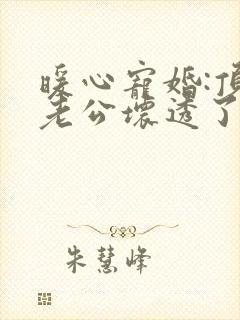 暖心寵婚:頂
老公壞透了
朱慧峰